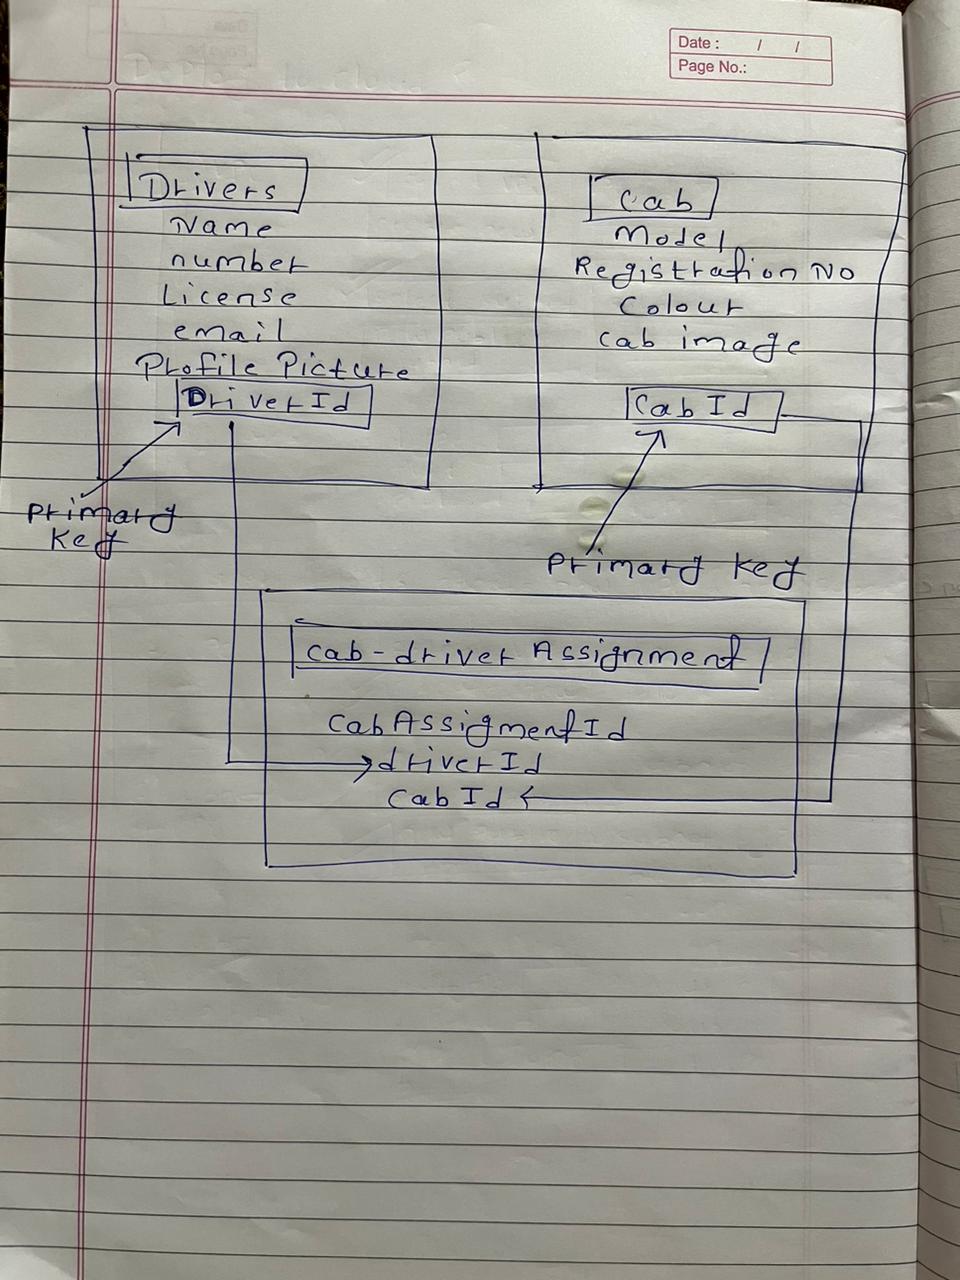 Date : / /
Page No.:
Drivers
Name
number
License
email
Profile Picture
DriverId
Primary
Key
Cab
Model
Registration No
Colour
Cab image
Cab Id
Primary Key
Cab-driver Assignment
CabAssigmentId
driverId
Cab Id